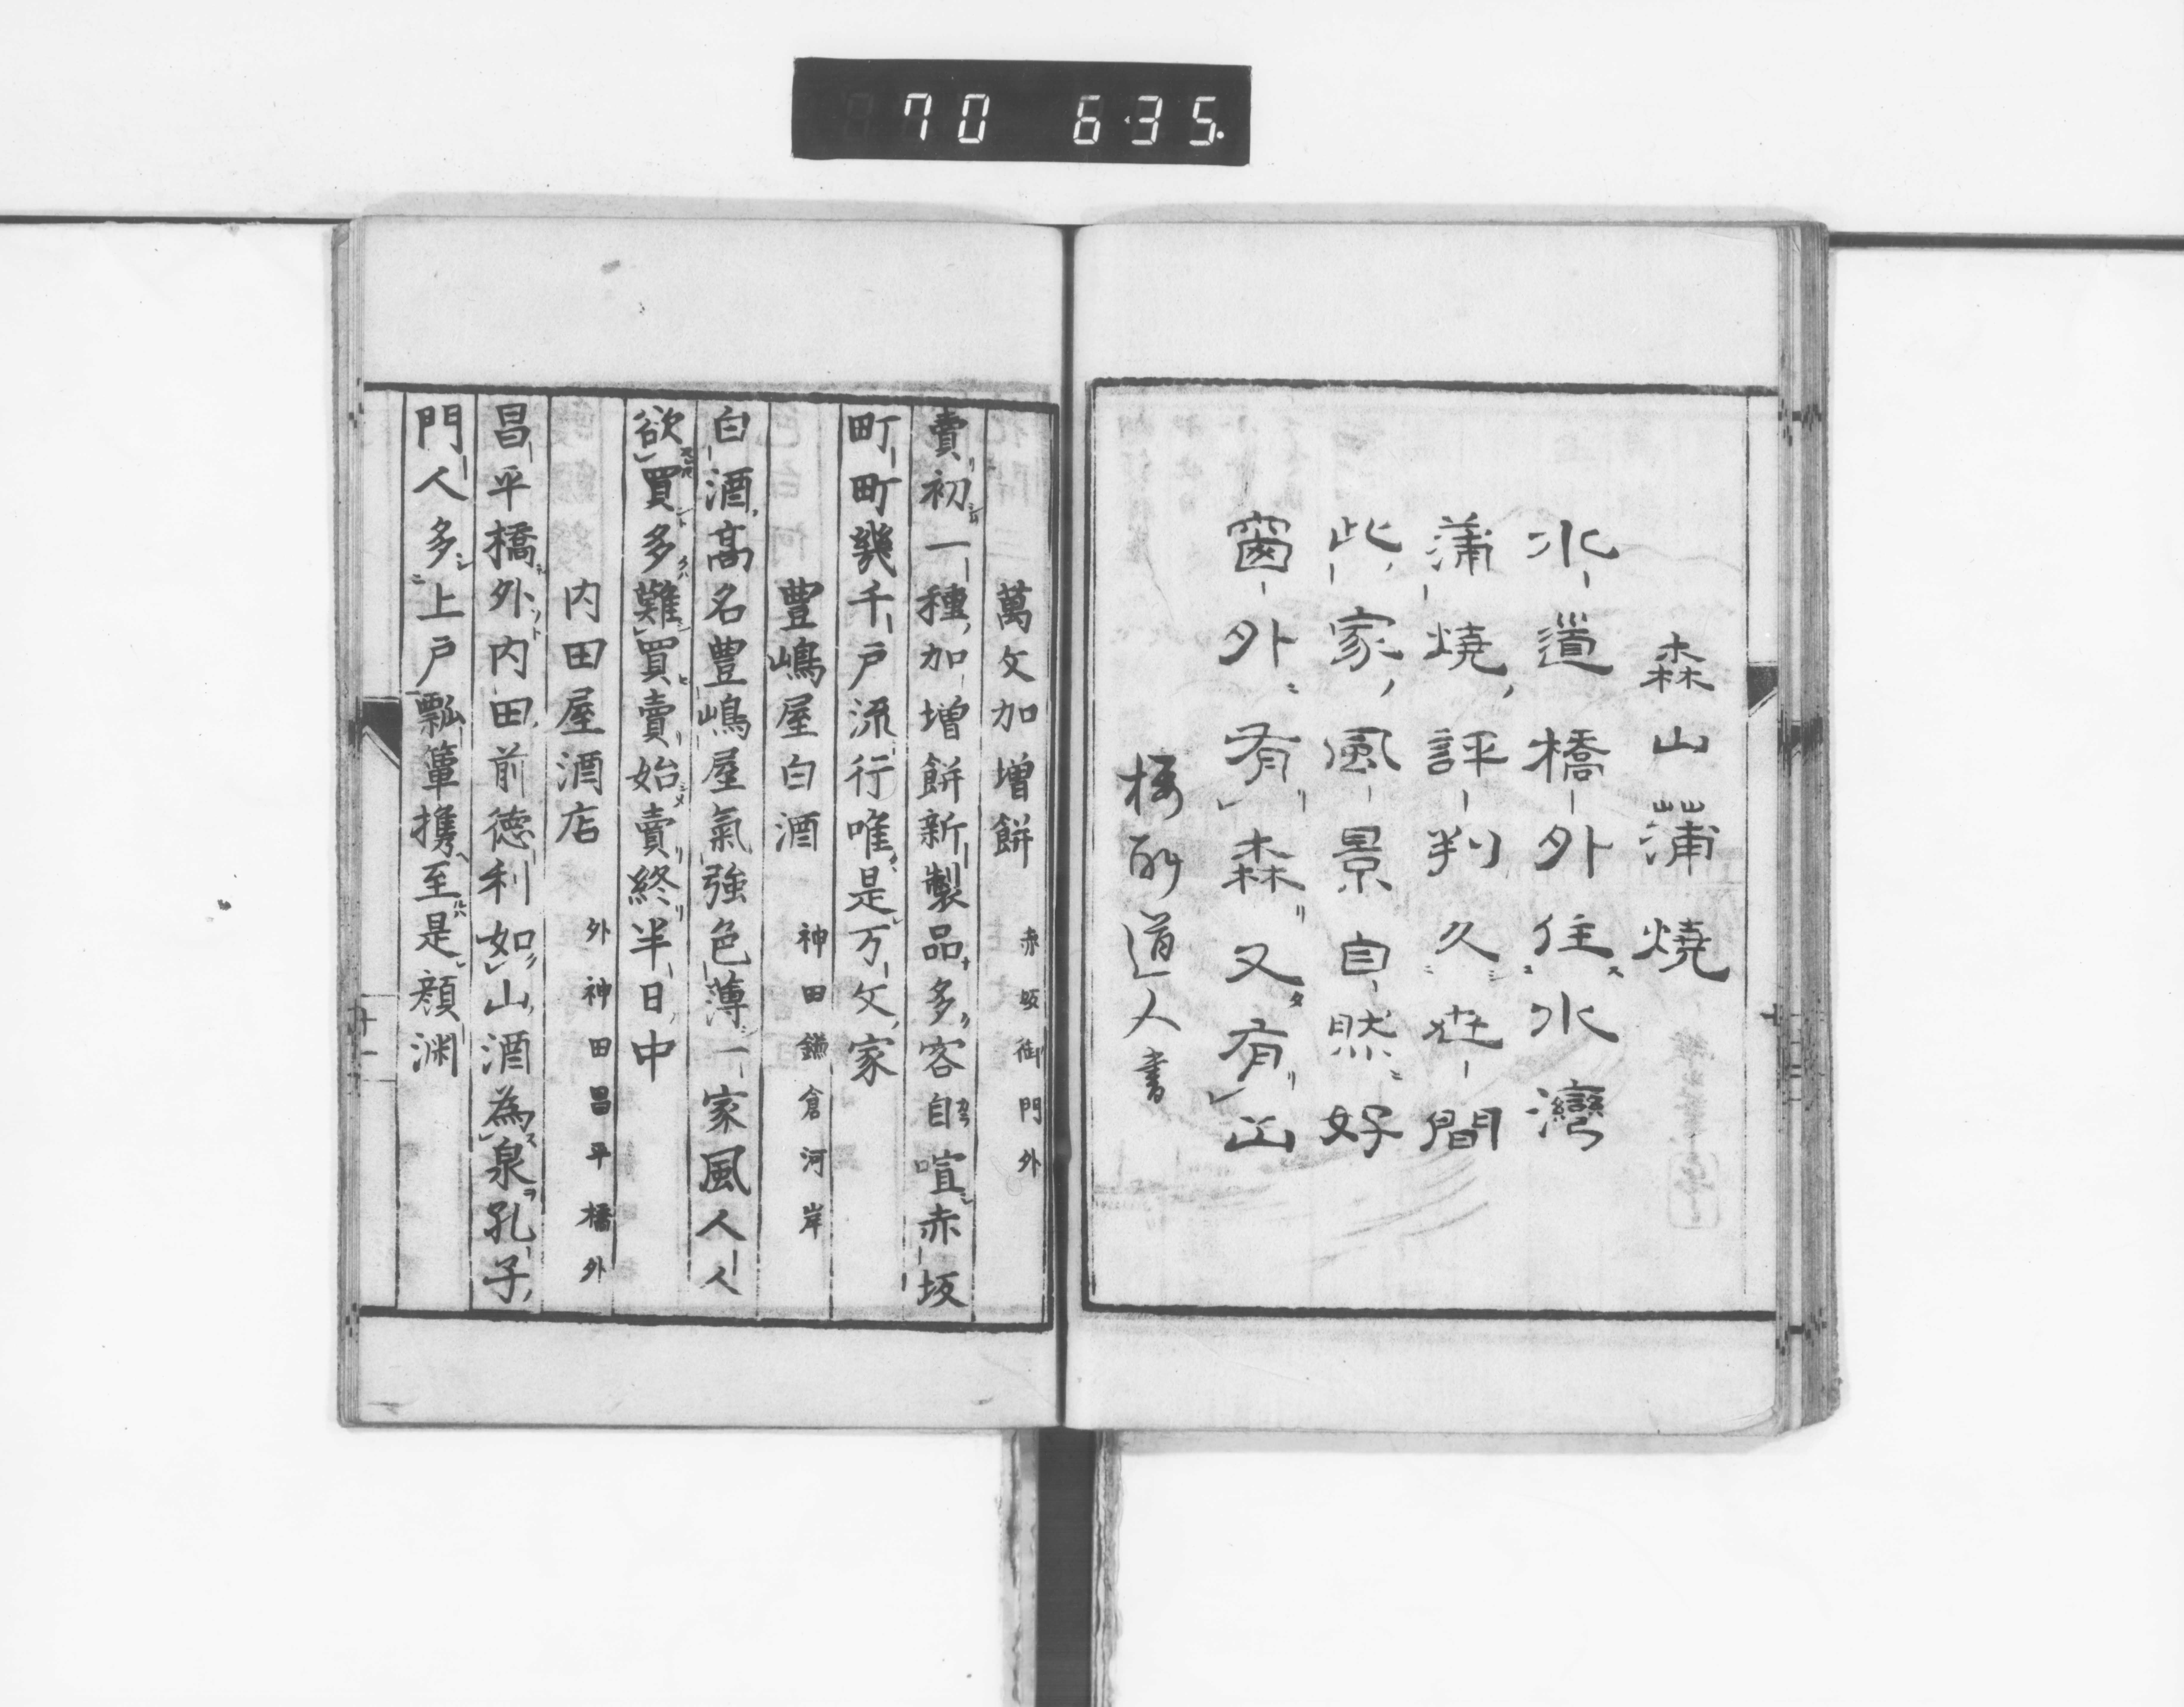 70 635.
森山蒲焼
水道橋外住水灣
蒲燒評判久世間
此家風景自然好
窗外有森又有山
道人書
萬文加増餅 赤坂御門外
賣初一種加増餅新製品多客自喧赤坂
町町幾千戸流行唯是万文家
豊嶋屋白酒 神田鎌倉河岸
白酒高名豊嶋屋氣強色薄一家風人人
欲買多難買賣始賣終半日中
内田屋酒店 外神田昌平橋外
昌平橋外内田前徳利如山酒為泉孔子
門人多上戸瓢簞携至是顔渊
十一